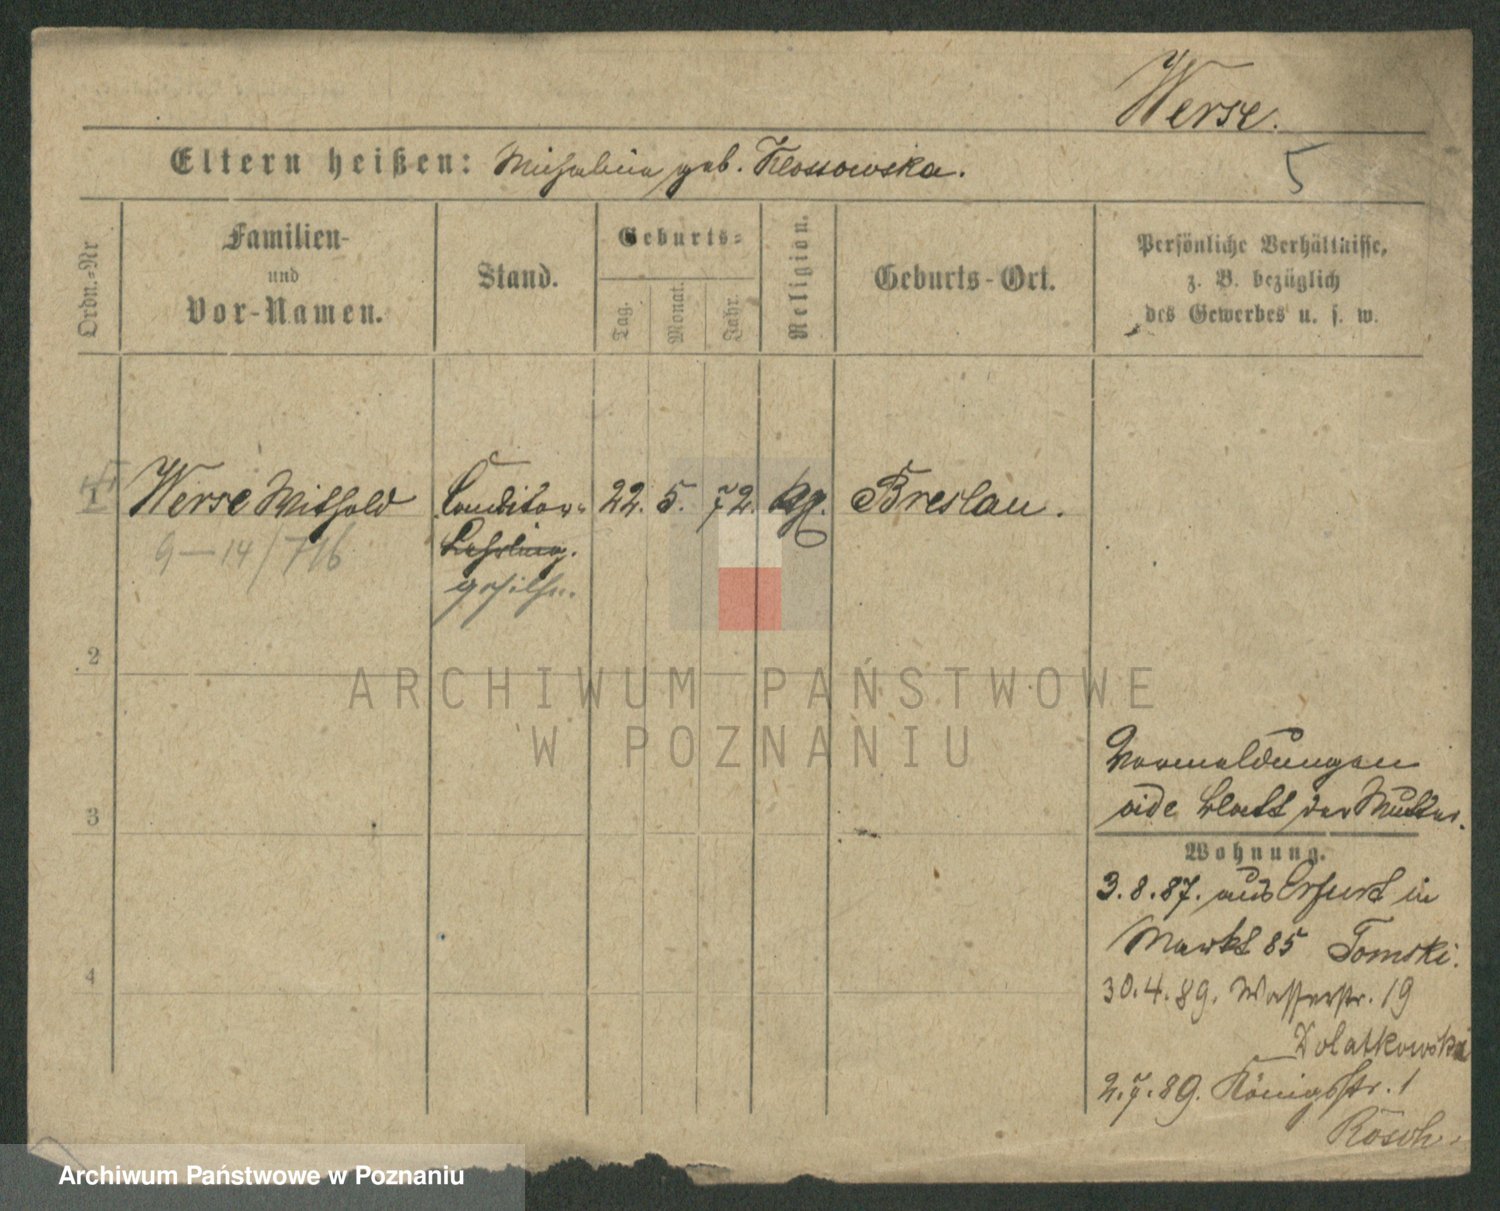 Werse.
Eltern heißen: Michalina geb. Klossowska.
5
Ordn.=Nr
Familien-
und
Vor-Namen.
Stand.
Geburts=
Tag.
Monat.
Jahr.
Religion.
Geburts-Ort.
Persönliche Verhältnisse,
z. B. bezüglich
des Gewerbes u. s. w.
1 Werse Withold Conditor= 22. 5. 72. Breslau.
9-14/716 Lehrling.
gehilfe.
2
ARCHIWUM PAŃSTWOWE
W POZNANIU
3
Vormeldungen
vide Blatt der Mutter.
Wohnung.
3.8.87. aus Erfurt in
Markt 85 Tomski.
4
30.4.89. Wasserstr. 19
Dolatkowski
2.7.89. Königsstr. 1
Rösch.
Archiwum Państwowe w Poznaniu